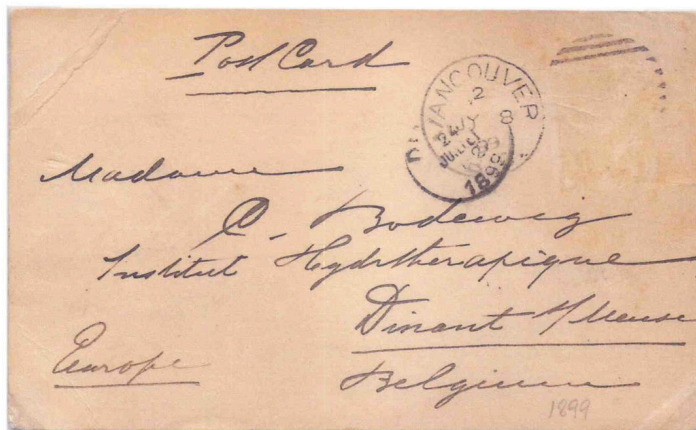 Post Card
VANCOUVER
2
JY 8
1899
Madame
C. Bodewig
Institut Hydrothérapique
Dinant s/Meuse
Europe
Belgium
1899